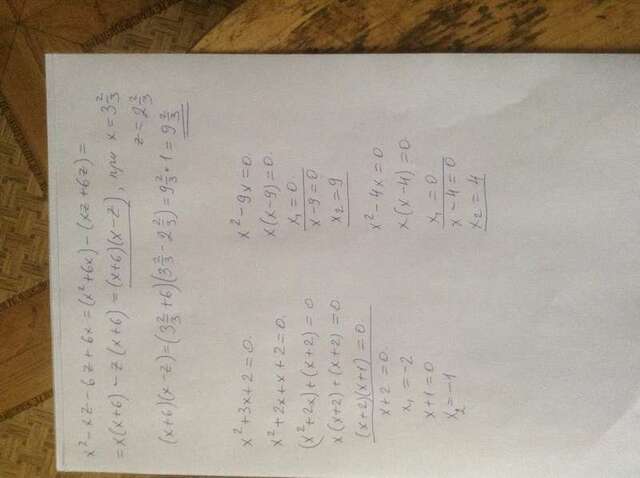 x² - xz - 6z + 6x = (x² + 6x) - (xz + 6z) =
= x(x+6) - z(x+6) = (x+6)(x-z), при x = 3 2/3
z = 2 2/3
(x+6)(x-z) = (3 2/3 + 6)(3 2/3 - 2 2/3) = 9 2/3 · 1 = 9 2/3
x² + 3x + 2 = 0.
x² + 2x + x + 2 = 0.
(x² + 2x) + (x + 2) = 0
x(x+2) + (x+2) = 0
(x+2)(x+1) = 0.
x + 2 = 0.
x₁ = -2
x + 1 = 0
x₂ = -1
x² - 9x = 0.
x(x-9) = 0.
x₁ = 0.
x - 9 = 0
x₂ = 9
x² - 4x = 0
x(x-4) = 0
x₁ = 0
x - 4 = 0
x₂ = 4